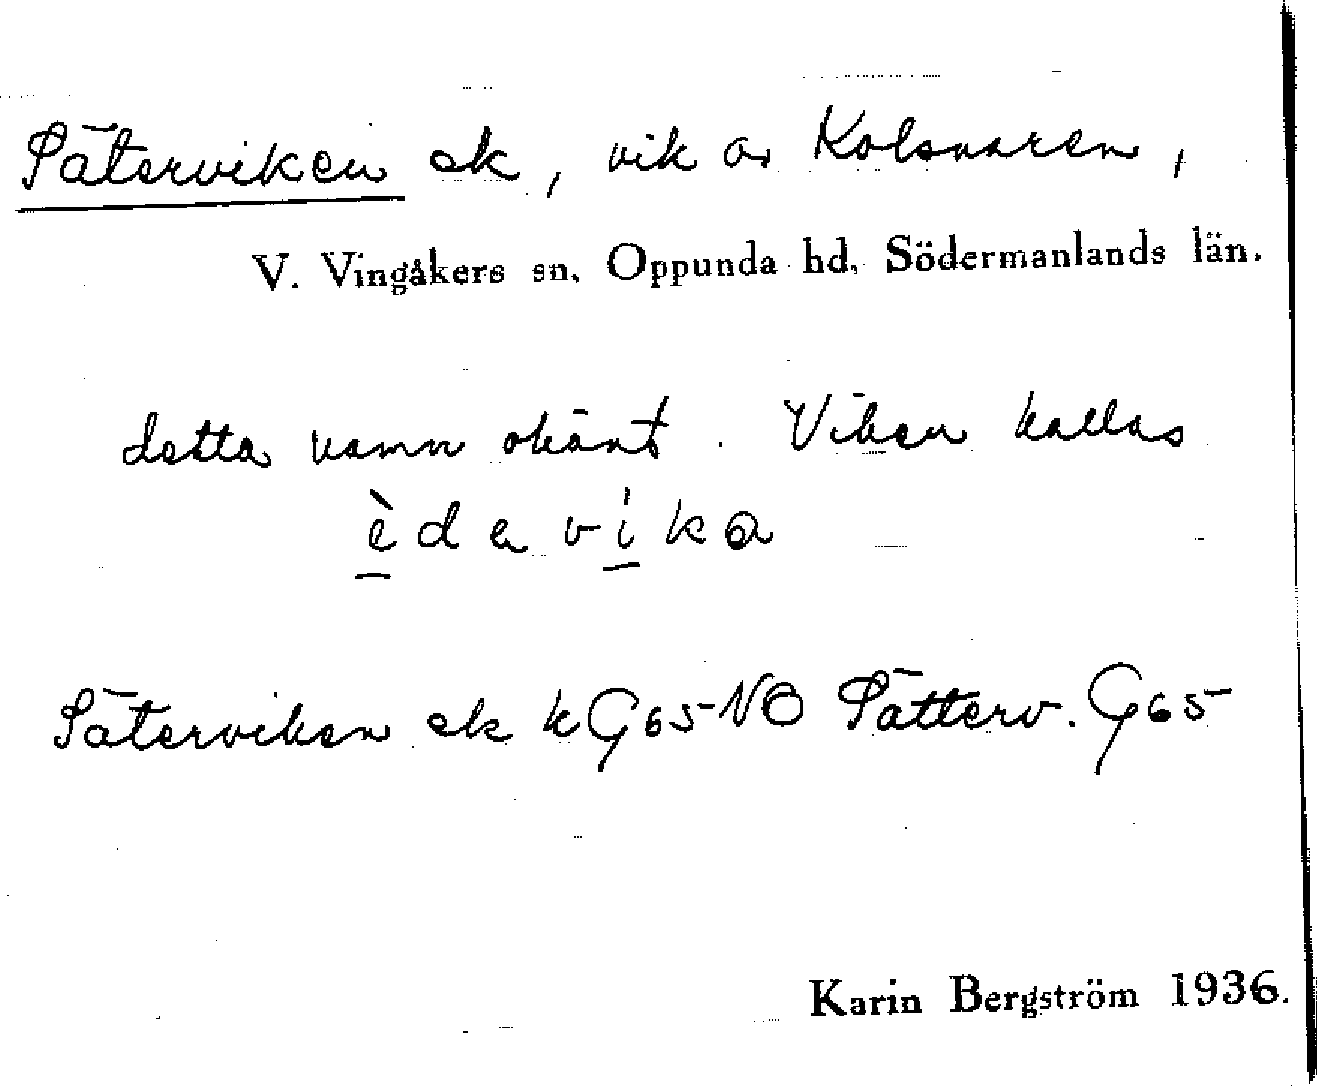 Päterviken ek, vik av Kolsnaren,
V. Vingåkers sn, Oppunda hd, Södermanlands län.
detta namn okänt. Viken kallas
è d a v í k a
Päterviken ek k G65 NO Pätterv. G65
Karin Bergström 1936.